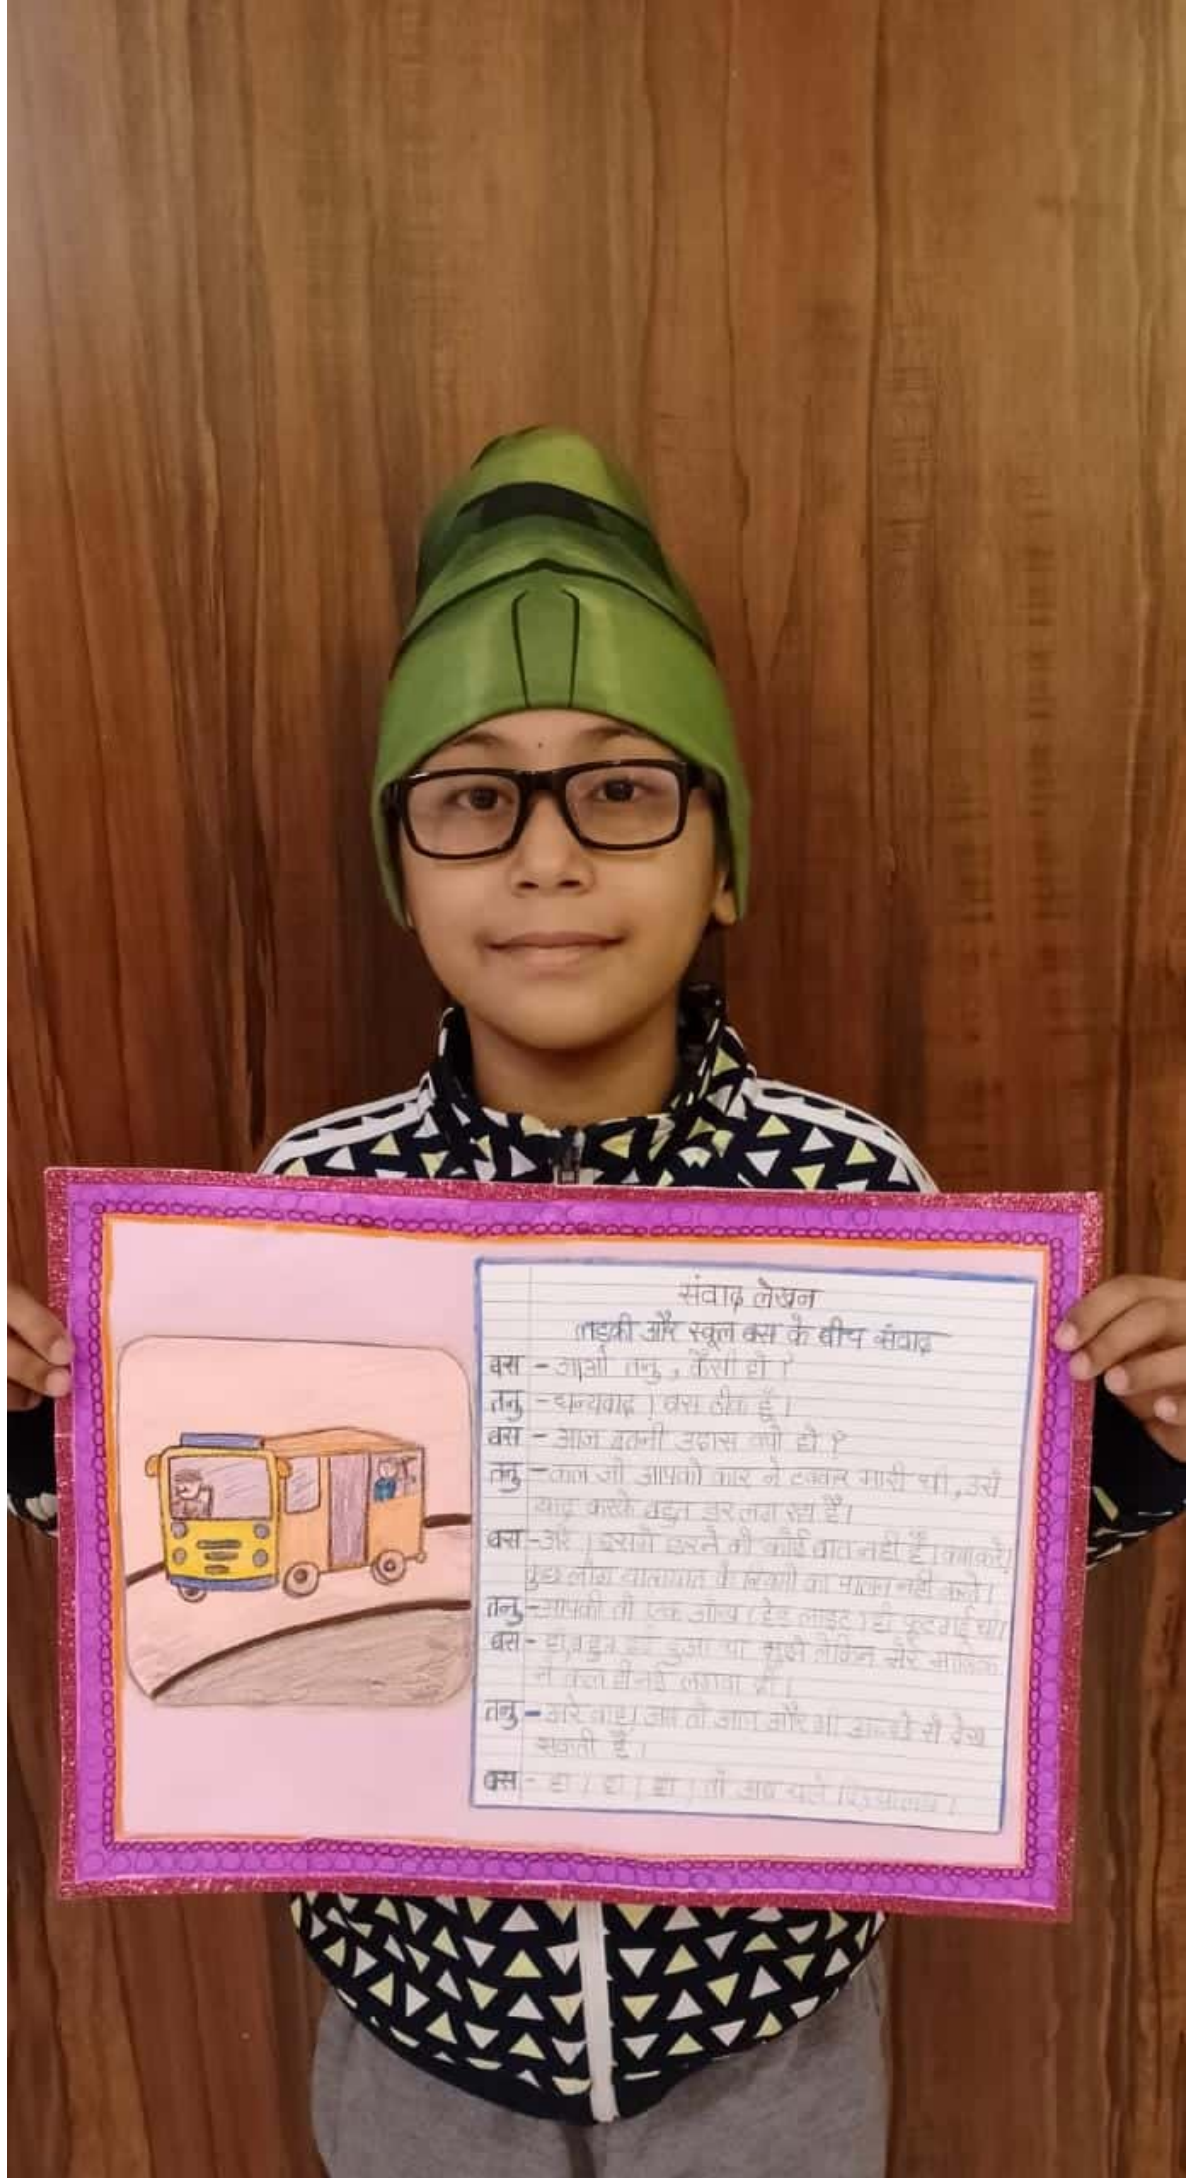 संवाद लेखन
लड़की और स्कूल बस के बीच संवाद
बस - आओ तनु, कैसी हो ?
तनु - धन्यवाद । बस ठीक हूँ ।
बस - आज इतनी उदास क्यों हो ?
तनु - कल जो आपको कार ने टक्कर मारी थी, उसे
याद करके बहुत डर लग रहा है ।
बस - अरे । इसमें डरने की कोई बात नहीं है । क्या करें ।
कुछ लोग यातायात के नियमों का पालन नहीं करते ।
तनु - आपकी तो एक आँख (हेड लाइट) ही फूट गई थी ।
बस - हाँ, बहुत दर्द हुआ था मुझे लेकिन मेरे मालिक
ने कल ही नई लगवा दी ।
तनु - अरे वाह । अब तो आप और भी अच्छे से देख
सकती हैं ।
बस - हा । हा । हा । तो अब चले विद्यालय ।